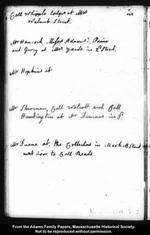 Coll Whipple lodges at Mrs
Walnut Street.
in
Mr Hancock, Messrs Adams's, Paine
and Gerry at Mrs Yards in Street.
Mr Hopkins at
Mr Sherman, Coll Wolcott and Coll
Huntington at Mr Duncans in
Mr Duane at the Collectors in Market Street
next door to Coll Reads.
From the Adams Family Papers, Massachusetts Historical Society.
Not to be reproduced without permission.